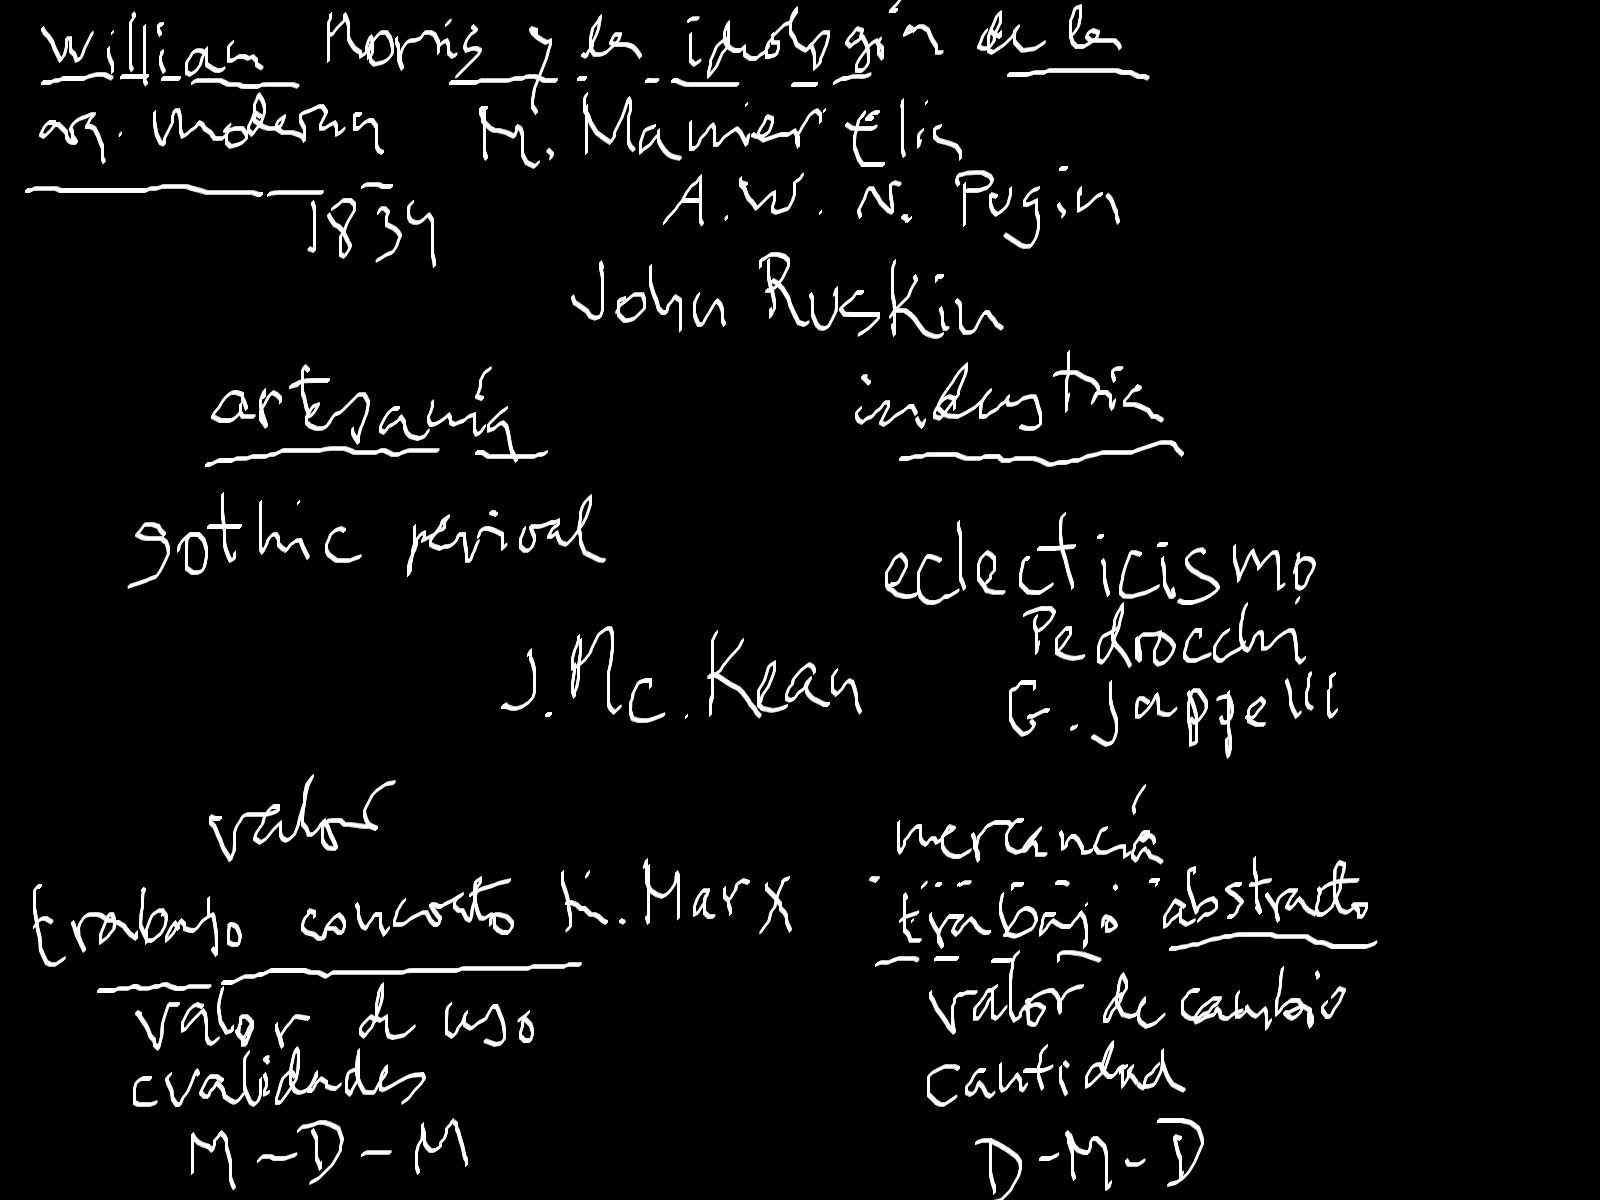 William Morris y la ideología de la
arq. moderna M. Manieri Elia
1834 A.W.N. Pugin
John Ruskin
artesanía industria
gothic revival eclecticismo
Pedrocchi
J. Mc. Kean G. Jappelli
valor mercancía
trabajo concreto K. Marx trabajo abstracto
valor de uso valor de cambio
cualidades cantidad
M-D-M D-M-D